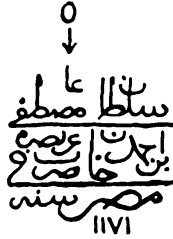 O
عا
سلطان مصطفى
بن احمد خان عز نصره ضرب في
مصر سنه
١١٧١